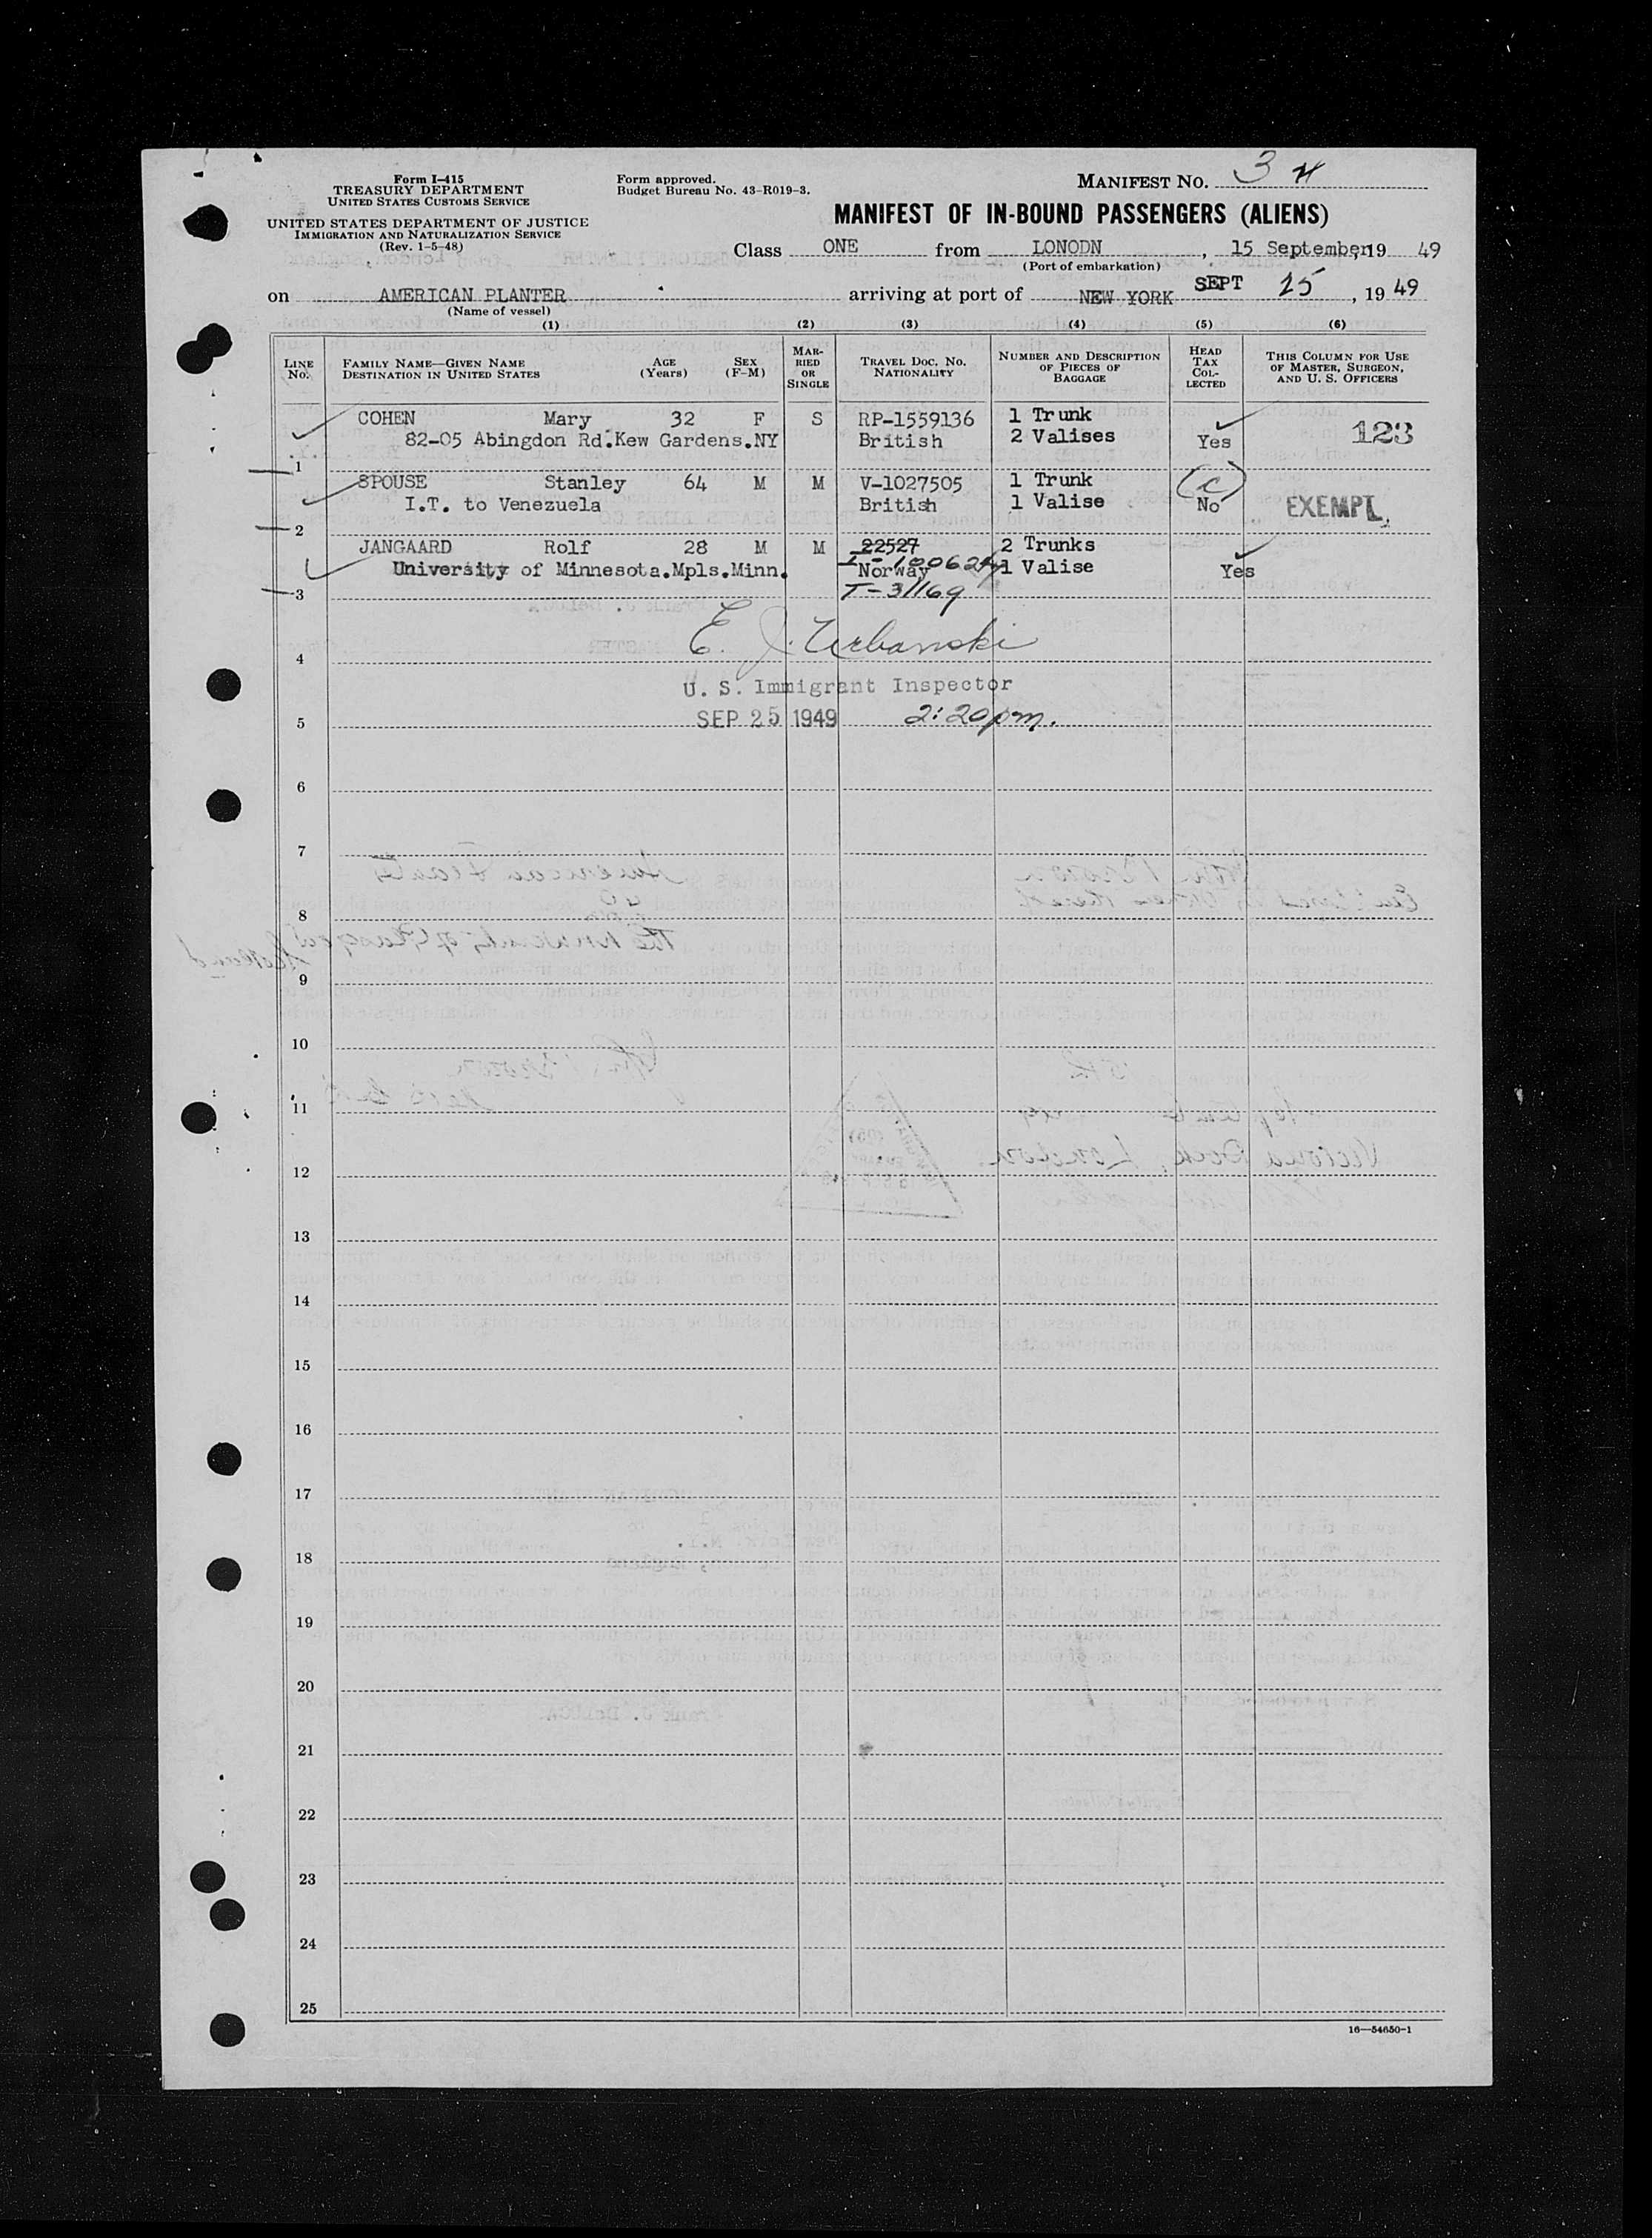 Form I-415
TREASURY DEPARTMENT
UNITED STATES CUSTOMS SERVICE
UNITED STATES DEPARTMENT OF JUSTICE
IMMIGRATION AND NATURALIZATION SERVICE
(Rev. 1-5-48)
Form approved.
Budget Bureau No. 43-R019-3.
MANIFEST NO. 3
MANIFEST OF IN-BOUND PASSENGERS (ALIENS)
Class ONE from LONODN, 15 September, 19 49
(Port of embarkation)
on AMERICAN PLANTER arriving at port of NEW YORK SEPT 25, 19 49
(Name of vessel)
(1) (2) (3) (4) (5) (6)
LINE No. FAMILY NAME—GIVEN NAME DESTINATION IN UNITED STATES AGE (Years) SEX (F-M) MARRIED OR SINGLE TRAVEL DOC. NO. NATIONALITY NUMBER AND DESCRIPTION OF PIECES OF BAGGAGE HEAD TAX COLLECTED THIS COLUMN FOR USE OF MASTER, SURGEON, AND U. S. OFFICERS
COHEN Mary 32 F S RP-1559136 1 Trunk
82-05 Abingdon Rd.Kew Gardens.NY British 2 Valises Yes 123
1
SPOUSE Stanley 64 M M V-1027505 1 Trunk (c)
I.T. to Venezuela British 1 Valise No EXEMPT
2
JANGAARD Rolf 28 M M 22527 2 Trunks
University of Minnesota.Mpls.Minn. Norway 1 Valise Yes
3 T-31169
E. J. Urbanski
4
U. S. Immigrant Inspector
5 SEP 25 1949 2:20 pm.
6
7
8
9
10
11
12
13
14
15
16
17
18
19
20
21
22
23
24
25
16—54650-1